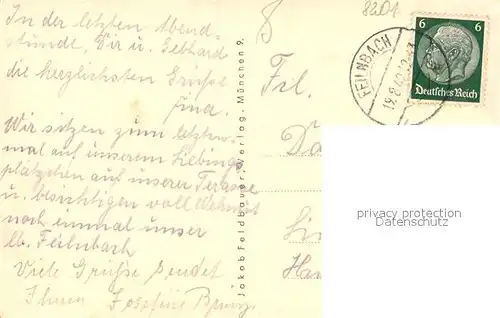 8201
In der letzten Abend-
stunde, Dir u. Gebhard
die herzlichsten Grüsse
Fina.
Wir sitzen zum letzten-
mal auf unserem Lieblings
plätzchen auf unserer Terasse
u. besichtigen voll Wehmut
noch einmal unser
lb. Feilnbach
Viele Grüsse sendet
Ihnen Josefine
Jakob Feldbauer, Verlag, München 9.
Frl.
FEILNBACH
19.8.40
6 6
Deutsches Reich
privacy protection
Datenschutz